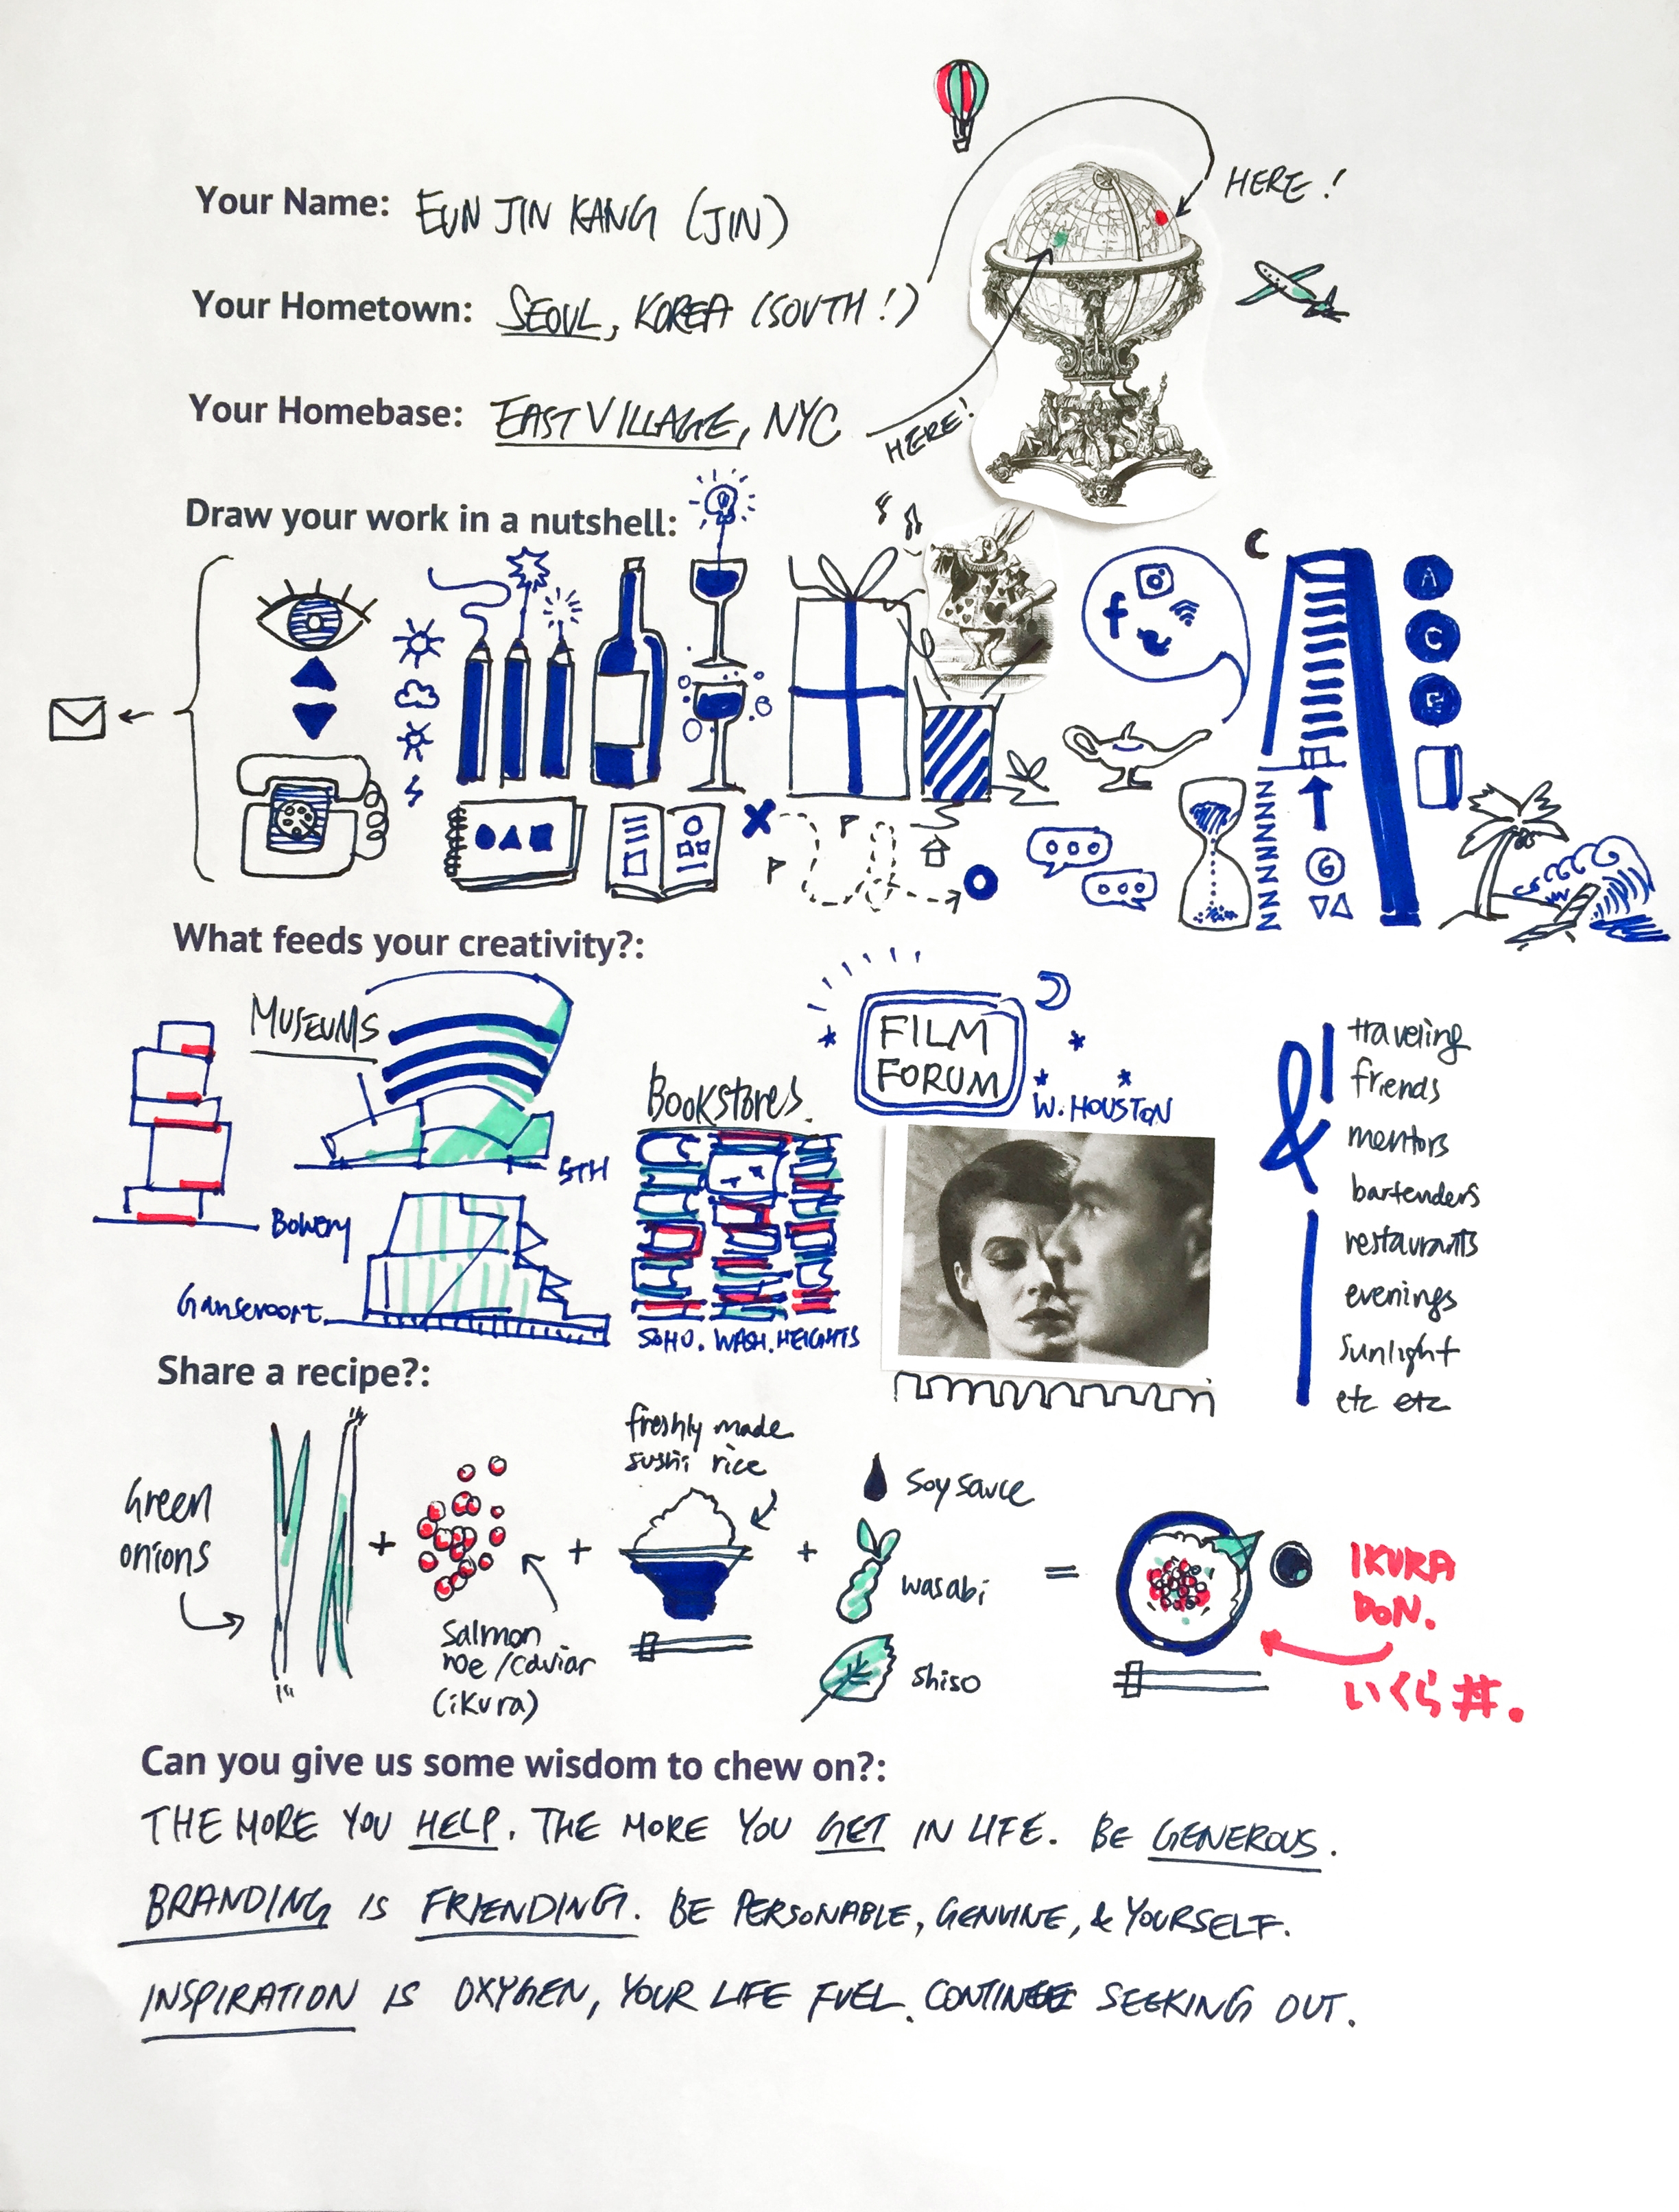 Your Name: EUN JIN KANG (JIN)
HERE!
Your Hometown: SEOUL, KOREA (SOUTH!)
Your Homebase: EAST VILLAGE, NYC
HERE!
Draw your work in a nutshell:
A
C
E
f
G
What feeds your creativity?:
MUSEUMS
5TH
Bowery
Gansevoort
Bookstores
SOHO. WASH. HEIGHTS
FILM
FORUM
W. HOUSTON
&
traveling
friends
mentors
bartenders
restaurants
evenings
sunlight
etc etc
Share a recipe?:
Green
onions
+
salmon
roe/caviar
(ikura)
+
freshly made
sushi rice
+
soy sauce
wasabi
shiso
=
IKURA
DON.
いくら丼.
Can you give us some wisdom to chew on?:
THE MORE YOU HELP. THE MORE YOU GET IN LIFE. BE GENEROUS.
BRANDING IS FRIENDING. BE PERSONABLE, GENUINE, & YOURSELF.
INSPIRATION IS OXYGEN, YOUR LIFE FUEL. CONTINUE SEEKING OUT.